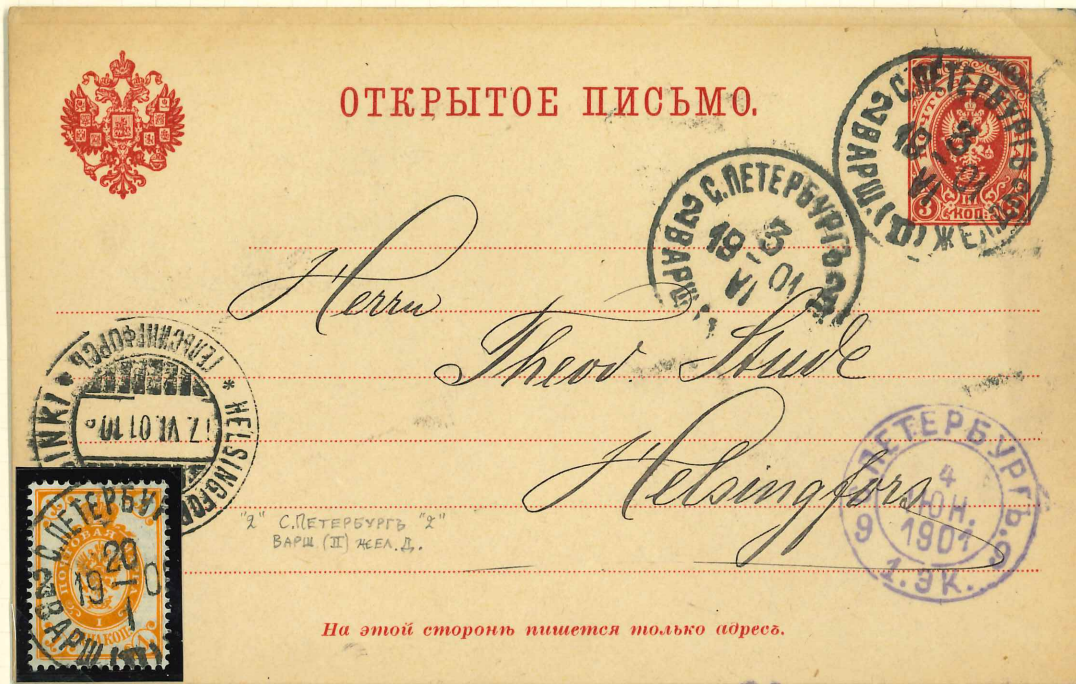 ОТКРЫТОЕ ПИСЬМО.
3 КОП.
С.ПЕТЕРБУРГЪ 2
2 ВАРШ. (II) ЖЕЛ.Д.
19 3
VI 01
С.ПЕТЕРБУРГЪ 2
2 ВАРШ.
19 3
VI 01
Herrn
Theod. Stude
Helsingfors
ГЕЛЬСИНГФОРСЪ
HELSINGFORS
HELSINKI
7.VI.01.10
ПЕТЕРБУРГЪ.С.
4
ІЮН.
1901
9
1.ЭК.
"2" С.ПЕТЕРБУРГЪ "2"
ВАРШ. (II) ЖЕЛ. Д.
С.ПЕТЕРБУ
20
19 0
1
2 ВАРШ
ПОЧТОВАЯ
На этой сторонѣ пишется только адресъ.